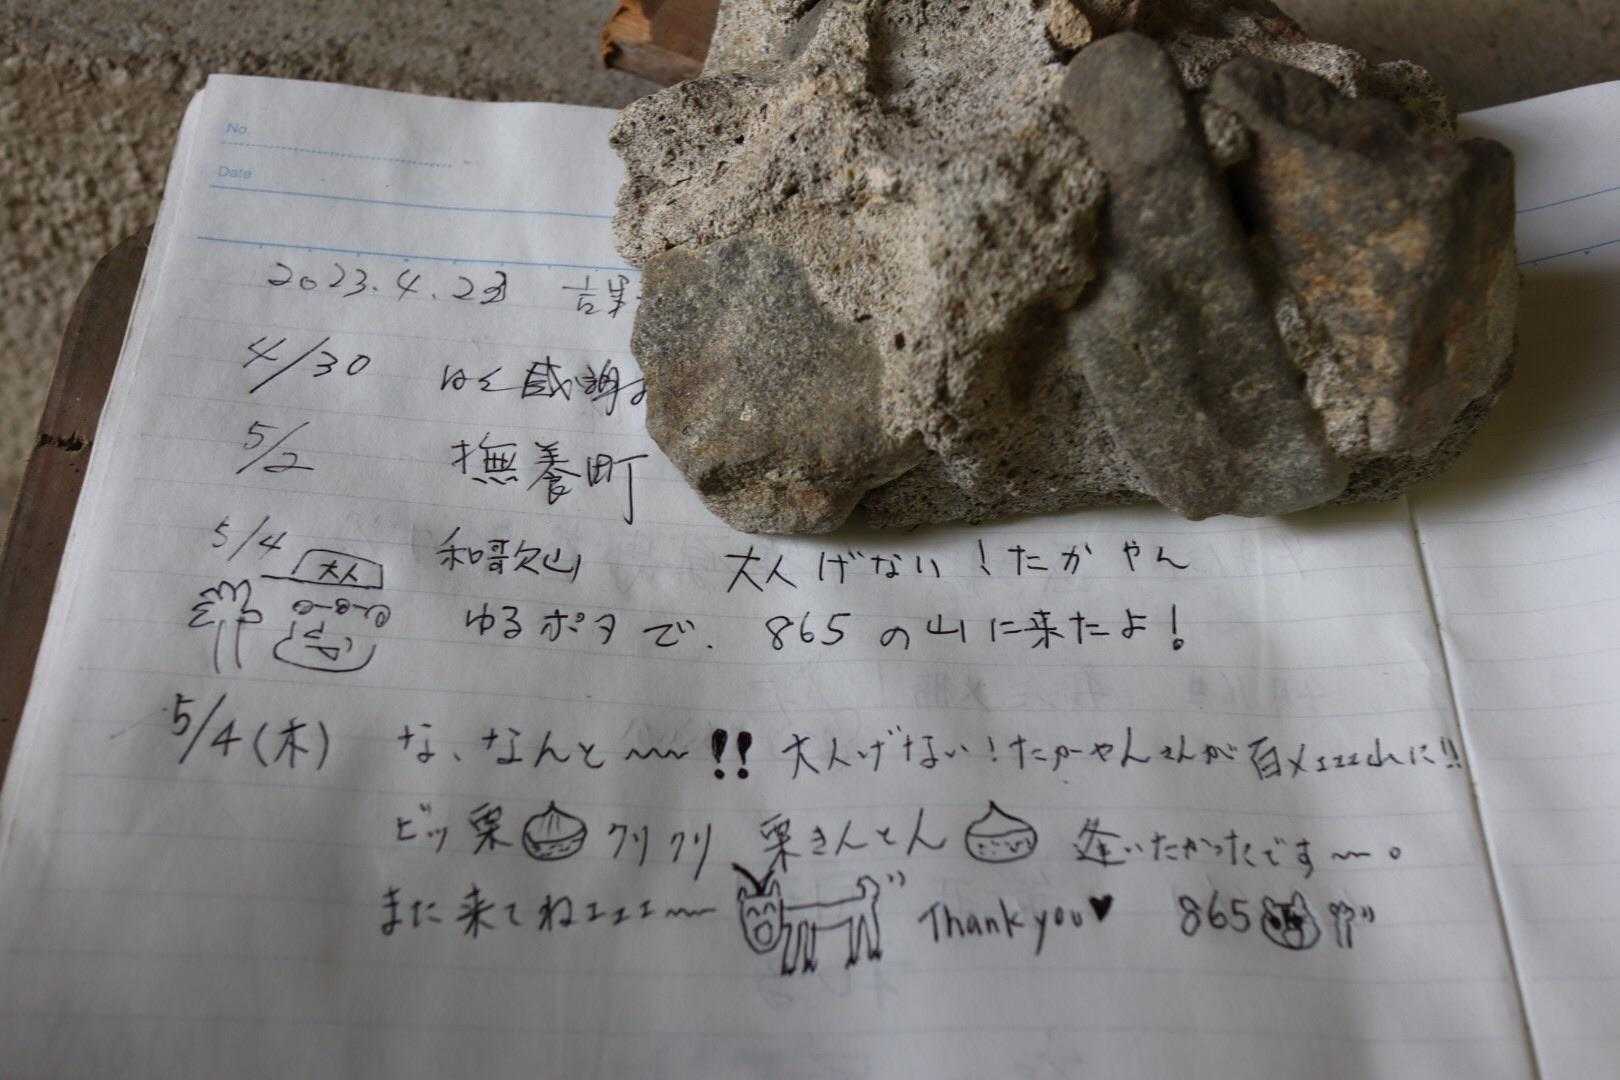 No.
Date
2023.4.23
4/30 感謝
5/2 撫養町
5/4 和歌山 大人げない！たかやん
大人
ゆるポタで、865の山に来たよ！
5/4(木) な、なんと〜〜!! 大人げない！たかやんさんが百メェェェ山に!!
ビッ栗 クリクリ 栗きんとん 逢いたかったです〜〜。
また来てねェェェ〜〜 Thank you♥ 865